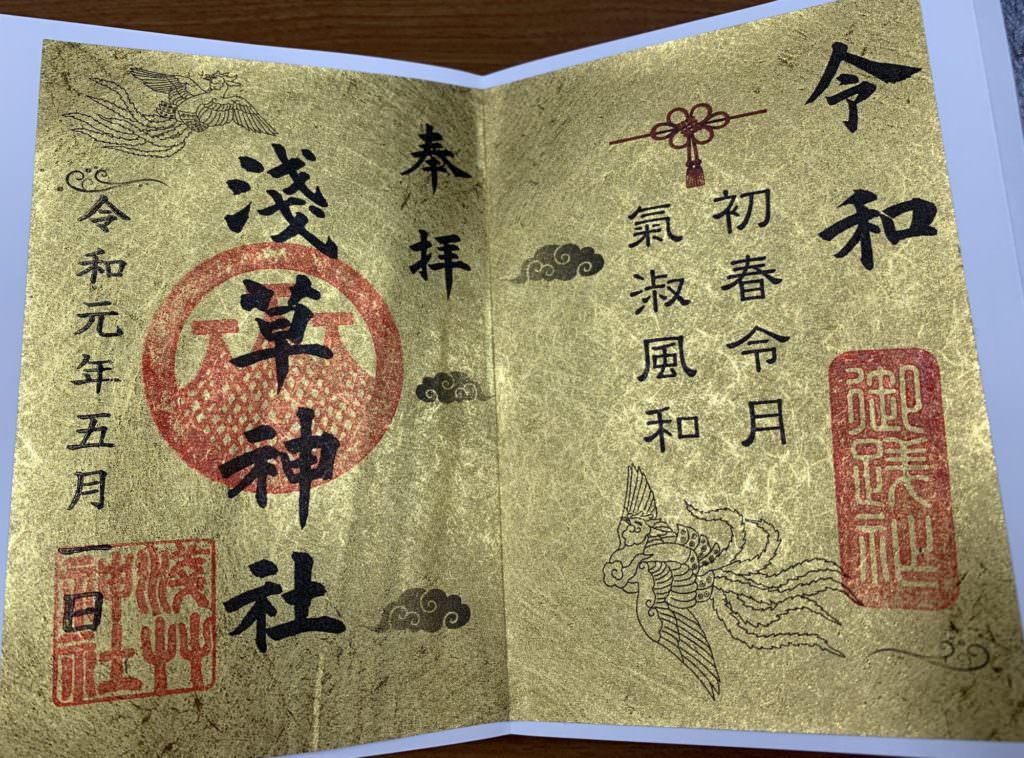 令和
御踐祚
初春令月
氣淑風和
奉拝
淺草神社
令和元年五月一日
淺艸
神社